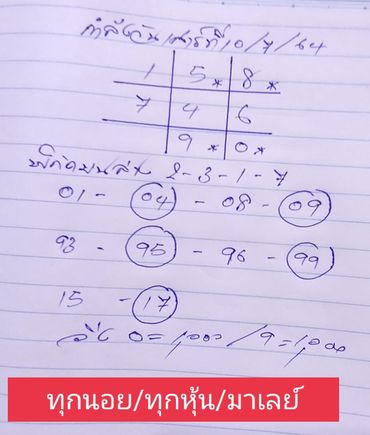 กำลังวันเสาร์ที่ 10/7/64
1 5* 8*
7 4 6
9* 0*
2-3-1-7
01 - 04 - 08 - 09
93 - 95 - 96 - 99
15 - 17
วิ่ง 0=1,000 / 9=1,000
ทุกนอย/ทุกหุ้น/มาเลย์